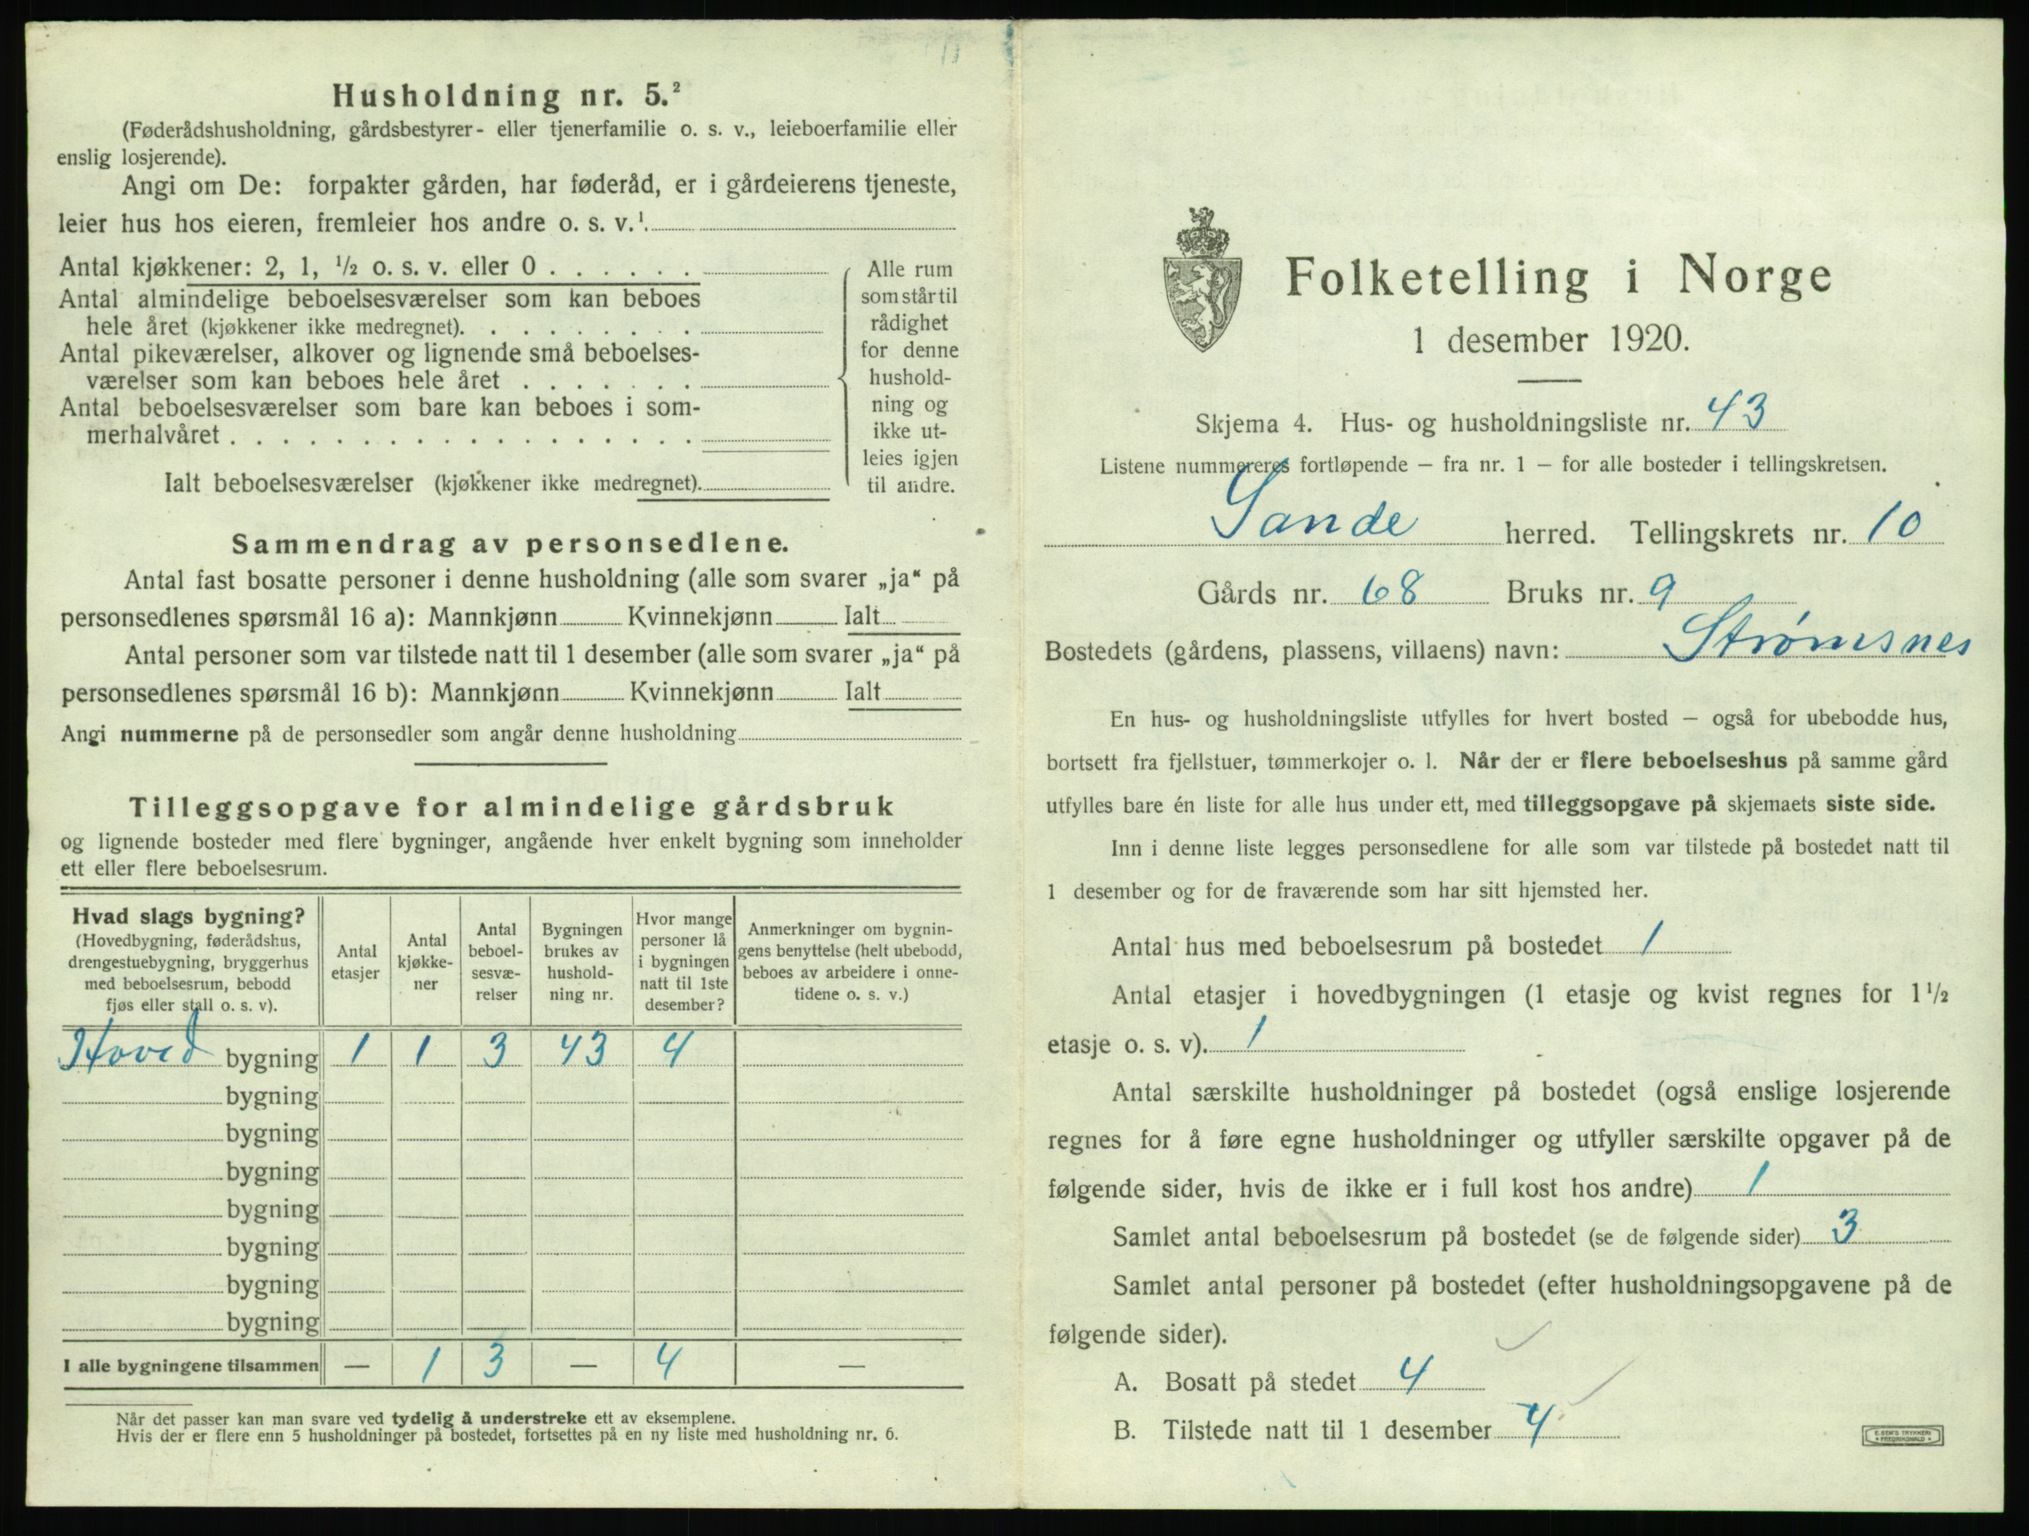 Husholdning nr. 5.²
(Føderådshusholdning, gårdsbestyrer- eller tjenerfamilie o. s. v., leieboerfamilie eller
enslig losjerende).
Angi om De: forpakter gården, har føderåd, er i gårdeierens tjeneste,
leier hus hos eieren, fremleier hos andre o. s. v.¹
Antal kjøkkener: 2, 1, ½ o. s. v. eller 0
Antal almindelige beboelsesværelser som kan beboes
hele året (kjøkkener ikke medregnet).
Antal pikeværelser, alkover og lignende små beboelses-
værelser som kan beboes hele året
Antal beboelsesværelser som bare kan beboes i som-
merhalvåret
Ialt beboelsesværelser (kjøkkener ikke medregnet).
Alle rum
som står til
rådighet
for denne
hushold-
ning og
ikke ut-
leies igjen
til andre.
Sammendrag av personsedlene.
Antal fast bosatte personer i denne husholdning (alle som svarer „ja“ på
personsedlenes spørsmål 16 a): Mannkjønn Kvinnekjønn Ialt
Antal personer som var tilstede natt til 1 desember (alle som svarer „ja“ på
personsedlenes spørsmål 16 b): Mannkjønn Kvinnekjønn Ialt
Angi nummerne på de personsedler som angår denne husholdning
Tilleggsopgave for almindelige gårdsbruk
og lignende bosteder med flere bygninger, angående hver enkelt bygning som inneholder
ett eller flere beboelsesrum.
Hvad slags bygning?
(Hovedbygning, føderådshus,
drengestuebygning, bryggerhus
med beboelsesrum, bebodd
fjøs eller stall o. s. v).
Antal
etasjer
Antal
kjøkke-
ner
Antal
beboel-
sesvæ-
relser
Bygningen
brukes av
hushold-
ning nr.
Hvor mange
personer lå
i bygningen
natt til 1ste
desember?
Anmerkninger om bygnin-
gens benyttelse (helt ubebodd,
beboes av arbeidere i onne-
tidene o. s. v.)
Hoved bygning 1 1 3 43 4
bygning
bygning
bygning
bygning
bygning
bygning
bygning
I alle bygningene tilsammen — 1 3 — 4 —
Når det passer kan man svare ved tydelig å understreke ett av eksemplene.
Hvis der er flere enn 5 husholdninger på bostedet, fortsettes på en ny liste med husholdning nr. 6.
Folketelling i Norge
1 desember 1920.
Skjema 4. Hus- og husholdningsliste nr. 43
Listene nummereres fortløpende – fra nr. 1 – for alle bosteder i tellingskretsen.
Sande herred. Tellingskrets nr. 10
Gårds nr. 68 Bruks nr. 9
Bostedets (gårdens, plassens, villaens) navn: Strømsnes
En hus- og husholdningsliste utfylles for hvert bosted – også for ubebodde hus,
bortsett fra fjellstuer, tømmerkojer o. l. Når der er flere beboelseshus på samme gård
utfylles bare én liste for alle hus under ett, med tilleggsopgave på skjemaets siste side.
Inn i denne liste legges personsedlene for alle som var tilstede på bostedet natt til
1 desember og for de fraværende som har sitt hjemsted her.
Antal hus med beboelsesrum på bostedet 1
Antal etasjer i hovedbygningen (1 etasje og kvist regnes for 1½
etasje o. s. v). 1
Antal særskilte husholdninger på bostedet (også enslige losjerende
regnes for å føre egne husholdninger og utfyller særskilte opgaver på de
følgende sider, hvis de ikke er i full kost hos andre) 1
Samlet antal beboelsesrum på bostedet (se de følgende sider) 3
Samlet antal personer på bostedet (efter husholdningsopgavene på de
følgende sider).
A. Bosatt på stedet 4
B. Tilstede natt til 1 desember 4
E. SEM'S TRYKKERI
FREDRIKSHALD